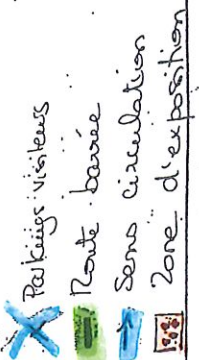 Parkings visiteurs
Route barrée
Sens circulation
Zone d'exposition